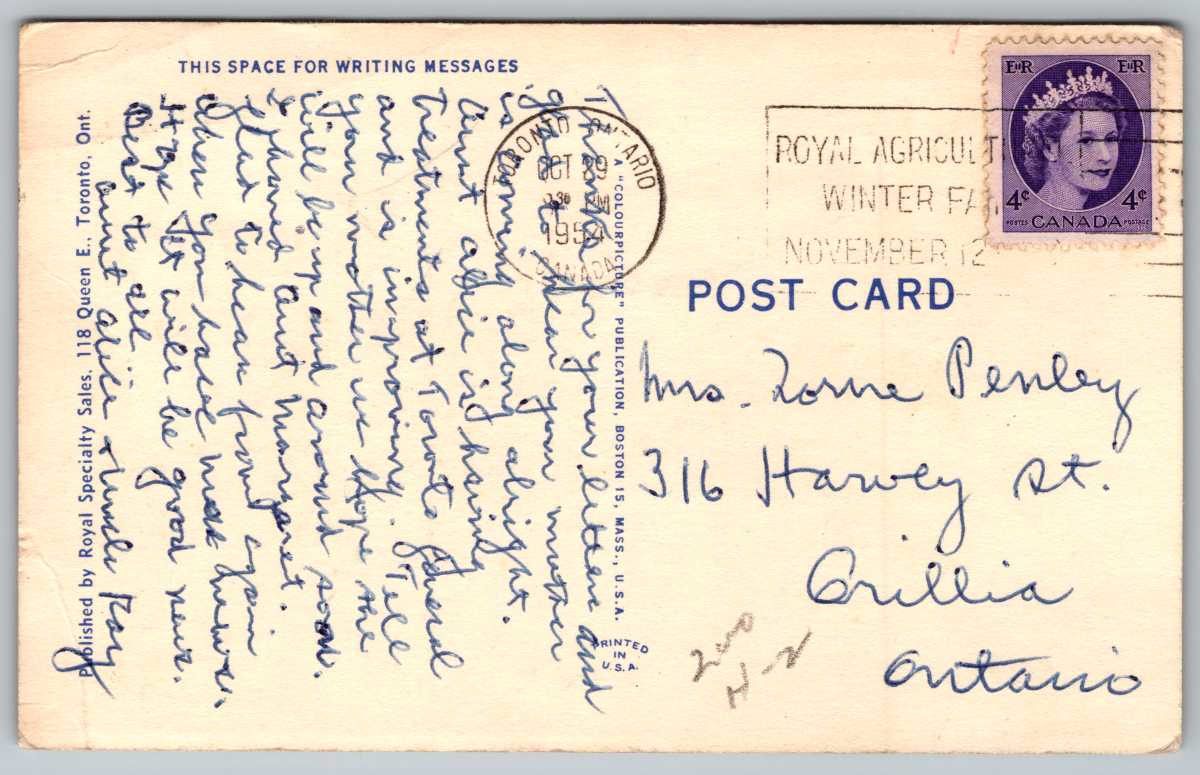 THIS SPACE FOR WRITING MESSAGES
Thanks for your letter and
glad to hear your mother
is coming along alright.
Aunt Alice is having
treatments at Toronto General
and is improving. Tell
your mother we hope she
will be up and around soon.
I phoned Aunt Margaret.
Glad to hear from you again
when you have more news.
Hope it will be good news.
Best to all
Aunt Alice & Uncle Roy
Published by Royal Specialty Sales, 118 Queen E., Toronto, Ont.
"COLOURPICTURE" PUBLICATION, BOSTON 15, MASS., U.S.A.
PRINTED
IN
U.S.A.
TORONTO ONTARIO
OCT 29
PM
1954
CANADA
ROYAL AGRICULT
WINTER FA
NOVEMBER 12
EIIR EIIR
4¢ 4¢
POSTES CANADA POSTAGE
POST CARD
Mrs. Lorne Penley
316 Harvey St.
Orillia
Ontario